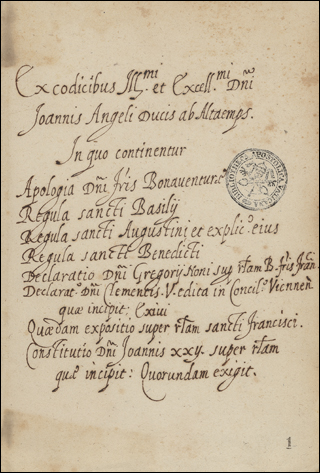 Ex codicibus Ill.mi et Excell.mi Dñi
Joannis Angeli Ducis ab Altaemps.
In quo continentur
Apologia Dñi fris Bonaventuræ
Regula sancti Basilij
Regula sancti Augustini et explic.º eius
Regula sancti Benedicti
Declaratio Dñi Gregorij Noni sup rl̃am B. fris frãn.
Declarat.º Dñi Clementis. V. edita in Concil.º Viennen̄
quæ incipit: Exivi
Quædam expositio super rl̃am sancti Francisci.
Constitutio Dñi Joannis xxij. super rl̃am
quæ incipit: Quorundam exigit.
BIBLIOTHECA APOSTOLICA VATICANA
1